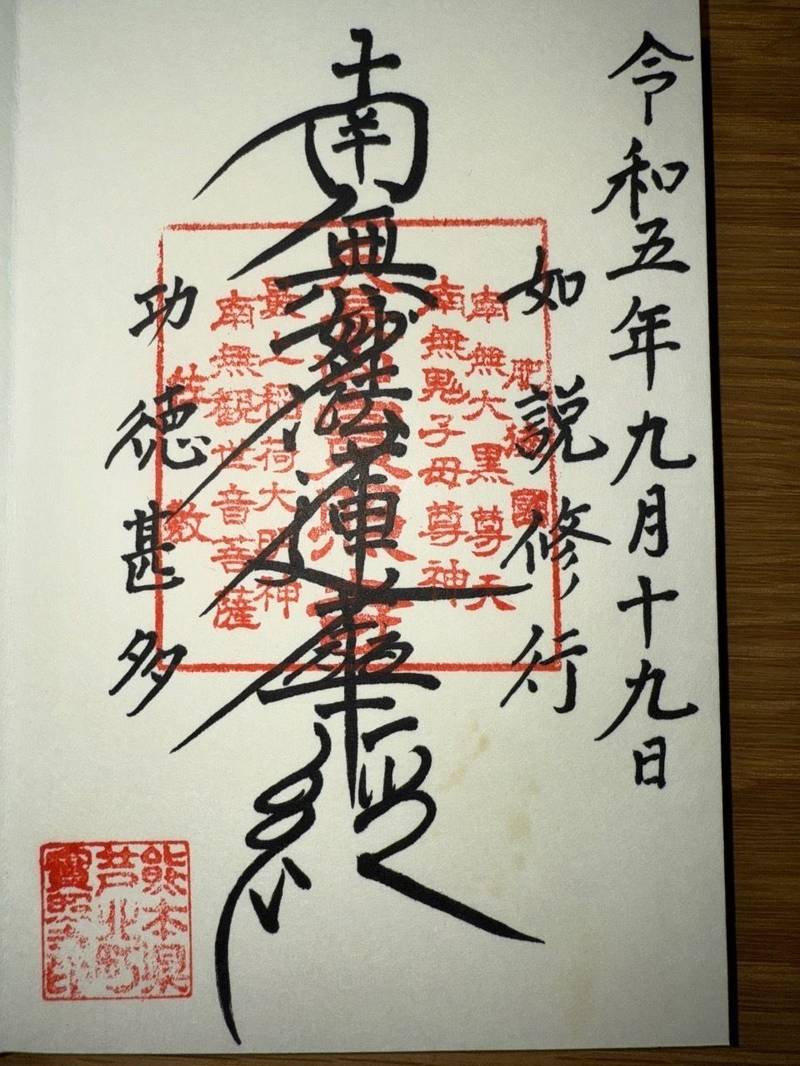 令和五年九月十九日
如説修行
南無妙法蓮華經
功徳甚多
肥後國
南無大黒尊天
南無鬼子母尊神
最上稲荷大明神
南無観世音菩薩
佐敷
熊本県
芦北町
實照寺印